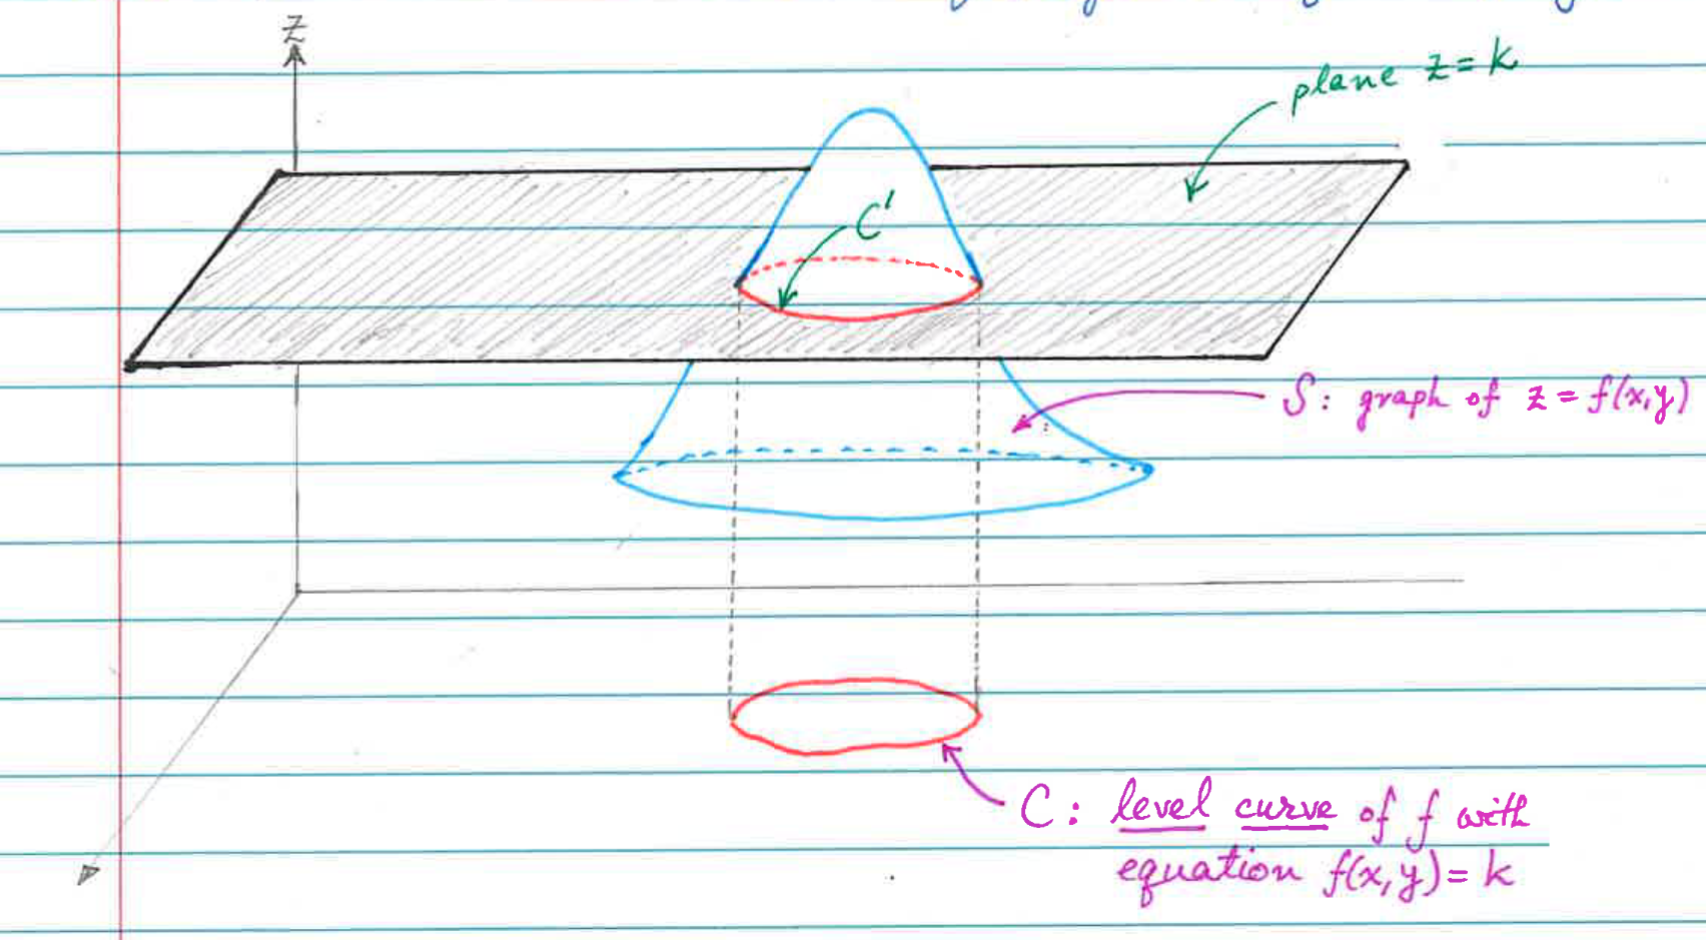 z
plane z = k
C'
S: graph of z = f(x,y)
C: level curve of f with
equation f(x,y) = k